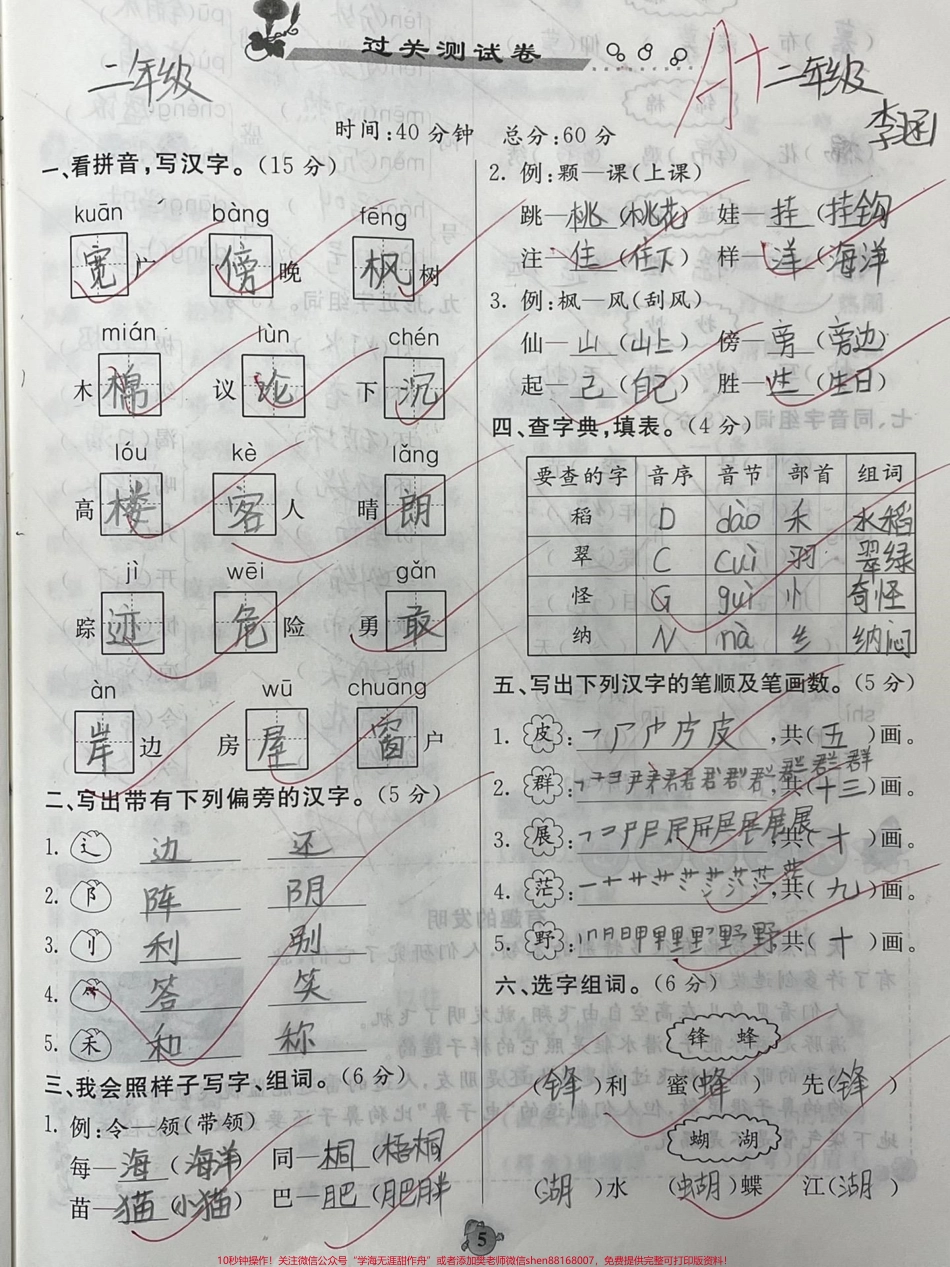 过关测试卷
二年级
A+
二年级
时间:40分钟 总分:60分
一、看拼音,写汉字。(15分)
kuān bàng fēng
宽广 傍晚 枫树
mián lùn chén
木棉 议论 下沉
lóu kè lǎng
高楼 客人 晴朗
jì wēi gǎn
踪迹 危险 勇敢
àn wū chuāng
岸边 房屋 窗户
二、写出带有下列偏旁的汉字。(5分)
1. 辶 边 还
2. 阝 阵 阴
3. 刂 利 别
4. 答 笑
5. 禾 和 称
三、我会照样子写字、组词。(6分)
1. 例:令—领(带领)
每—海(海洋) 同—桐(梧桐)
苗—猫(小猫) 巴—肥(肥胖)
2. 例:颗—课(上课)
跳—桃(桃花) 娃—挂(挂钩)
注—住(住下) 样—洋(海洋)
3. 例:枫—风(刮风)
仙—山(山上) 傍—旁(旁边)
起—己(自己) 胜—生(生日)
四、查字典,填表。(4分)
要查的字 音序 音节 部首 组词
稻 D dào 禾 水稻
翠 C cuì 羽 翠绿
怪 G guì 忄 奇怪
纳 N nà 纟 纳闷
五、写出下列汉字的笔顺及笔画数。(5分)
1. 皮: ,共(五)画。
2. 群: ,共(十三)画。
3. 展: ,共(十)画。
4. 茫: ,共(九)画。
5. 野: 共(十)画。
六、选字组词。(6分)
锋 蜂
(锋)利 蜜(蜂) 先(锋)
蝴 湖
(湖)水 (蝴)蝶 江(湖)
5
10秒钟操作!关注微信公众号“学海无涯甜作舟”或者添加樊老师微信shen88168007,免费提供完整可打印版资料!